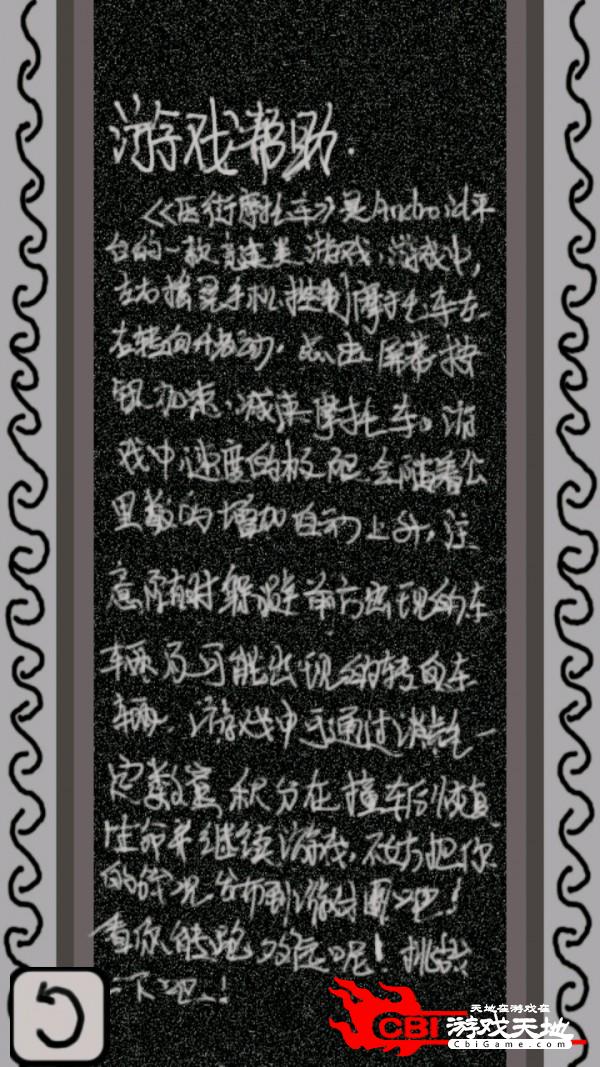 游戏帮助.
《医街摩托车》是Android平
台的一款竞速类游戏,游戏中,
左右摇晃手机控制摩托车左
右转向移动,点击屏幕按
钮加速、减速摩托车。游
戏中速度的极限会随着公
里数的增加自动上升,注
意随时躲避前方出现的车
辆及可能出现的转向车
辆.游戏中可通过消耗一
定数量积分在撞车后恢复
生命并继续游戏,不妨把你
的战况发布到游戏圈吧!
看你能跑多远呢!挑战
一下吧!
天地在游戏在
CBI游戏天地
CbiGame.com